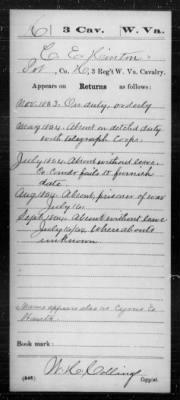 H | 3 Cav. | W. Va.
C. E. Hinton
Pvt, Co. H, 3 Reg't W. Va. Cavalry.
Appears on Returns as follows:
Nov. 1863. On duty, orderly
May 1864. Absent on detchd duty
with telegraph Corps.
July 1864. Absent without leave
Co. Comdr fails to furnish
date
Aug 1864. Absent, prisoner of war
July 16.
Sept. 1864. Absent without leave
July 16/64. Whereabouts
unknown
Name appears also as Cyrus E.
Book mark:
(546)
Copyist.